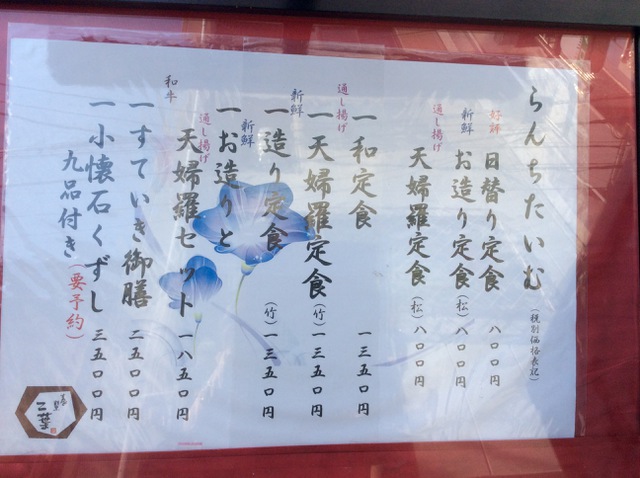 らんちたいむ（税別価格表記）
好評
日替り定食 八〇〇円
新鮮
お造り定食（松）八〇〇円
通し揚げ
天婦羅定食（松）八〇〇円
一和定食 一三五〇円
通し揚げ
一天婦羅定食（竹）一三五〇円
新鮮
一造り定食（竹）一三五〇円
新鮮
一お造りと
通し揚げ
天婦羅セット 一八五〇円
和牛
一すていき御膳 二五〇〇円
一小懐石くずし 三五〇〇円
九品付き（要予約）
二葉